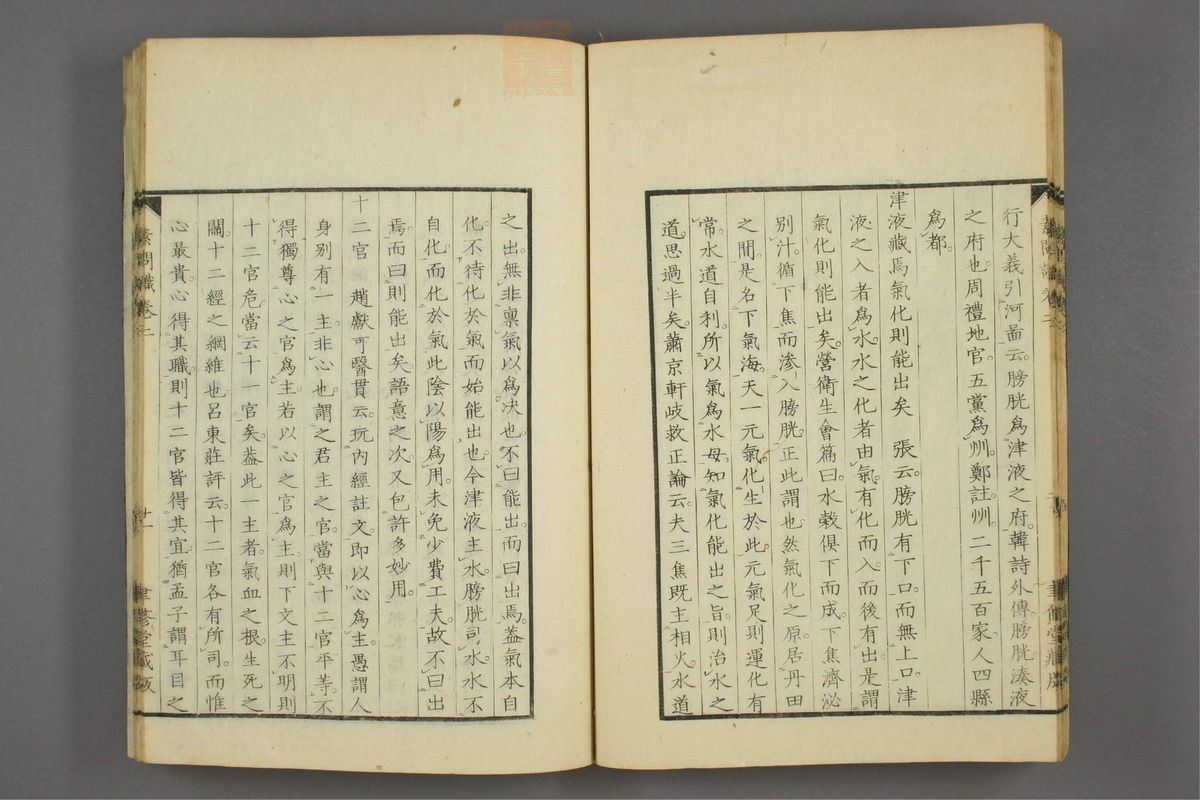 行大義引河啚云膀胱爲津液之府韓詩外傳膀胱湊液
之府也周禮地官五黨爲州鄭註州二千五百家人四縣
爲都
津液藏焉氣化則能出矣　張云膀胱有下口而無上口津
液之入者爲水水之化者由氣有化而入而後有出是謂
氣化則能出矣營衛生會篇曰水榖俱下而成下焦濟泌
別汁循下焦而滲入膀胱正此謂也然氣化之原居丹田
之間是名下氣海天一元氣化生於此元氣足則運化有
常水道自利所以氣爲水母知氣化能出之旨則治水之
道思過半矣蕭京軒岐救正論云夫三焦既主相火水道
之出無非禀氣以爲决也不曰能出而曰出焉葢氣本自
化不待化於氣而始能出也今津液主水膀胱司水水不
自化而化於氣此陰以陽爲用未免少費工夫故不曰出
焉而曰則能出矣語意之次又包許多妙用
十二官　趙獻可醫貫云玩內經註文即以心爲主愚謂人
身別有一主非心也謂之君主之官當與十二官平等不
得獨尊心之官爲主若以心之官爲主則下文主不明則
十二官危當云十一官矣葢此一主者氣血之根生死之
關十二經之綱維也呂東莊評云十二官各有所司而惟
心最貴心得其職則十二官皆得其宜猶孟子謂耳目之
素問識卷二
廿一
聿修堂藏版